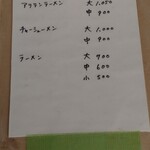 ワンタンラーメン 大 1,050
中 900
チャーシューメン 大 1,000
中 900
ラーメン 大 700
中 600
小 500